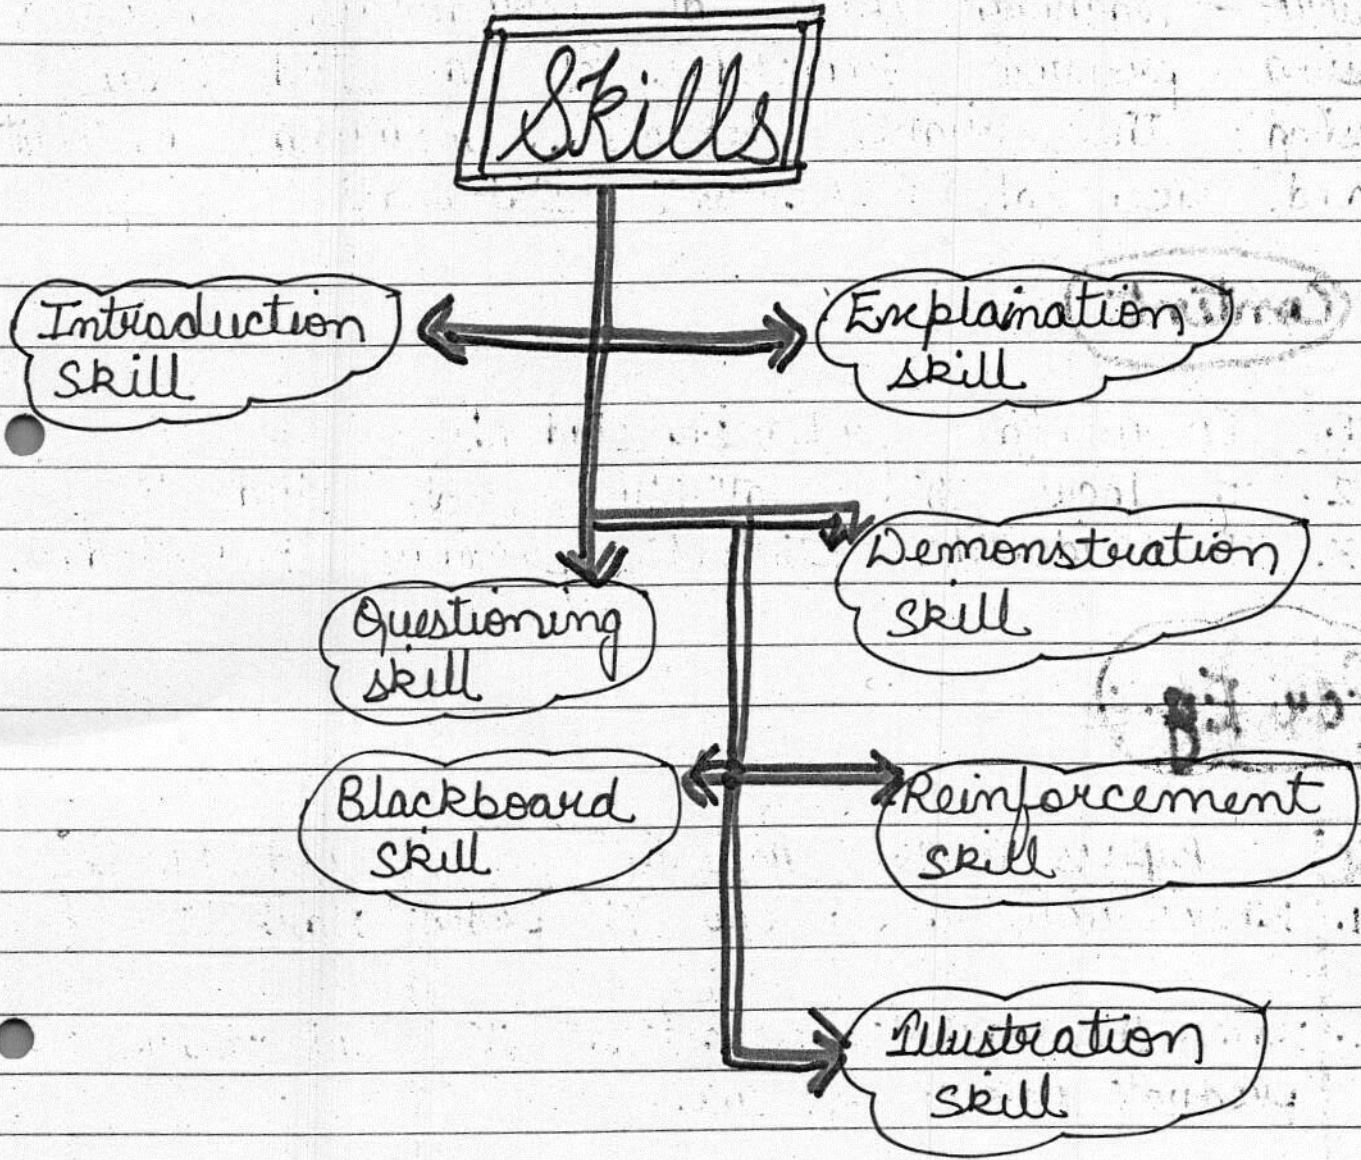 Skills
Introduction
skill
Explaination
skill
Demonstration
skill
Questioning
skill
Blackboard
skill
Reinforcement
skill
Illustration
skill